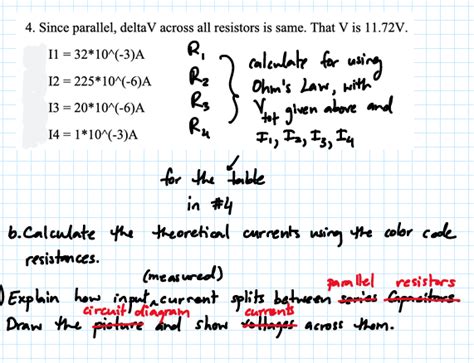 4. Since parallel, deltaV across all resistors is same. That V is 11.72V.
I1 = 32*10^(-3)A R1
I2 = 225*10^(-6)A R2
I3 = 20*10^(-6)A R3
I4 = 1*10^(-3)A R4
calculate for using
Ohm's Law, with
Vtot given above and
I1, I2, I3, I4
for the table
in #4
b. Calculate the theoretical currents using the color code
resistances.
(measured) parallel resistors
) Explain how input current splits between series Capacitors.
circuit diagram currents
Draw the picture and show voltages across them.